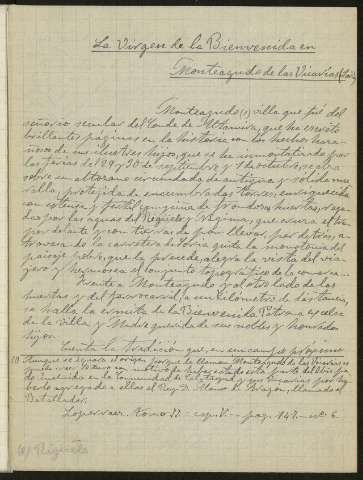 La Virgen de la Bienvenida en
Monteagudo de las Vicarías (Soria)
Monteagudo (1) villa que fué del
señorío secular del Conde de Altamira, que ha escrito
brillantes páginas en la historia con los hechos haza-
ñosos de sus ilustres hijos, que se ha inmortalizado por
las ferias de 29 y 30 de septiembre y 1º de octubre, se alza
sobre un altozano circundado de antigua y sólida mu-
ralla, protegida de encumbradas torres; enriquecida
con extensa y fértil campiña de frondosas huertas, rega-
das por las aguas del Regüelo y Nágima, que
por delante y con tierras de pan llevar, por detrás, a
través de la carretera de Soria quita la monotonía del
paisaje pobre, que la precede, alegra la vista del via-
jero y hermosea el conjunto topográfico de la comarca.
Frente a Monteagudo y al otro lado de las
huertas y del ferrocarril, a un kilómetro de distancia,
se halla la ermita de la Bienvenida Patrona excelsa
de la villa y Madre querida de sus nobles y honrados
hijos.
Cuenta la tradición que, en un campo próximo
(1) Aunque se ignora el origen, porque le llaman Monteagudo de las Vicarías se
de incluida en la Comunidad de Calatayud y sus vicarías por ha-
berla agregado a ellas el Rey D. Alfonso I de Aragón, llamado el
Batallador.
Loperraez. Tomo II. cap. V. pag. 147. nº 6